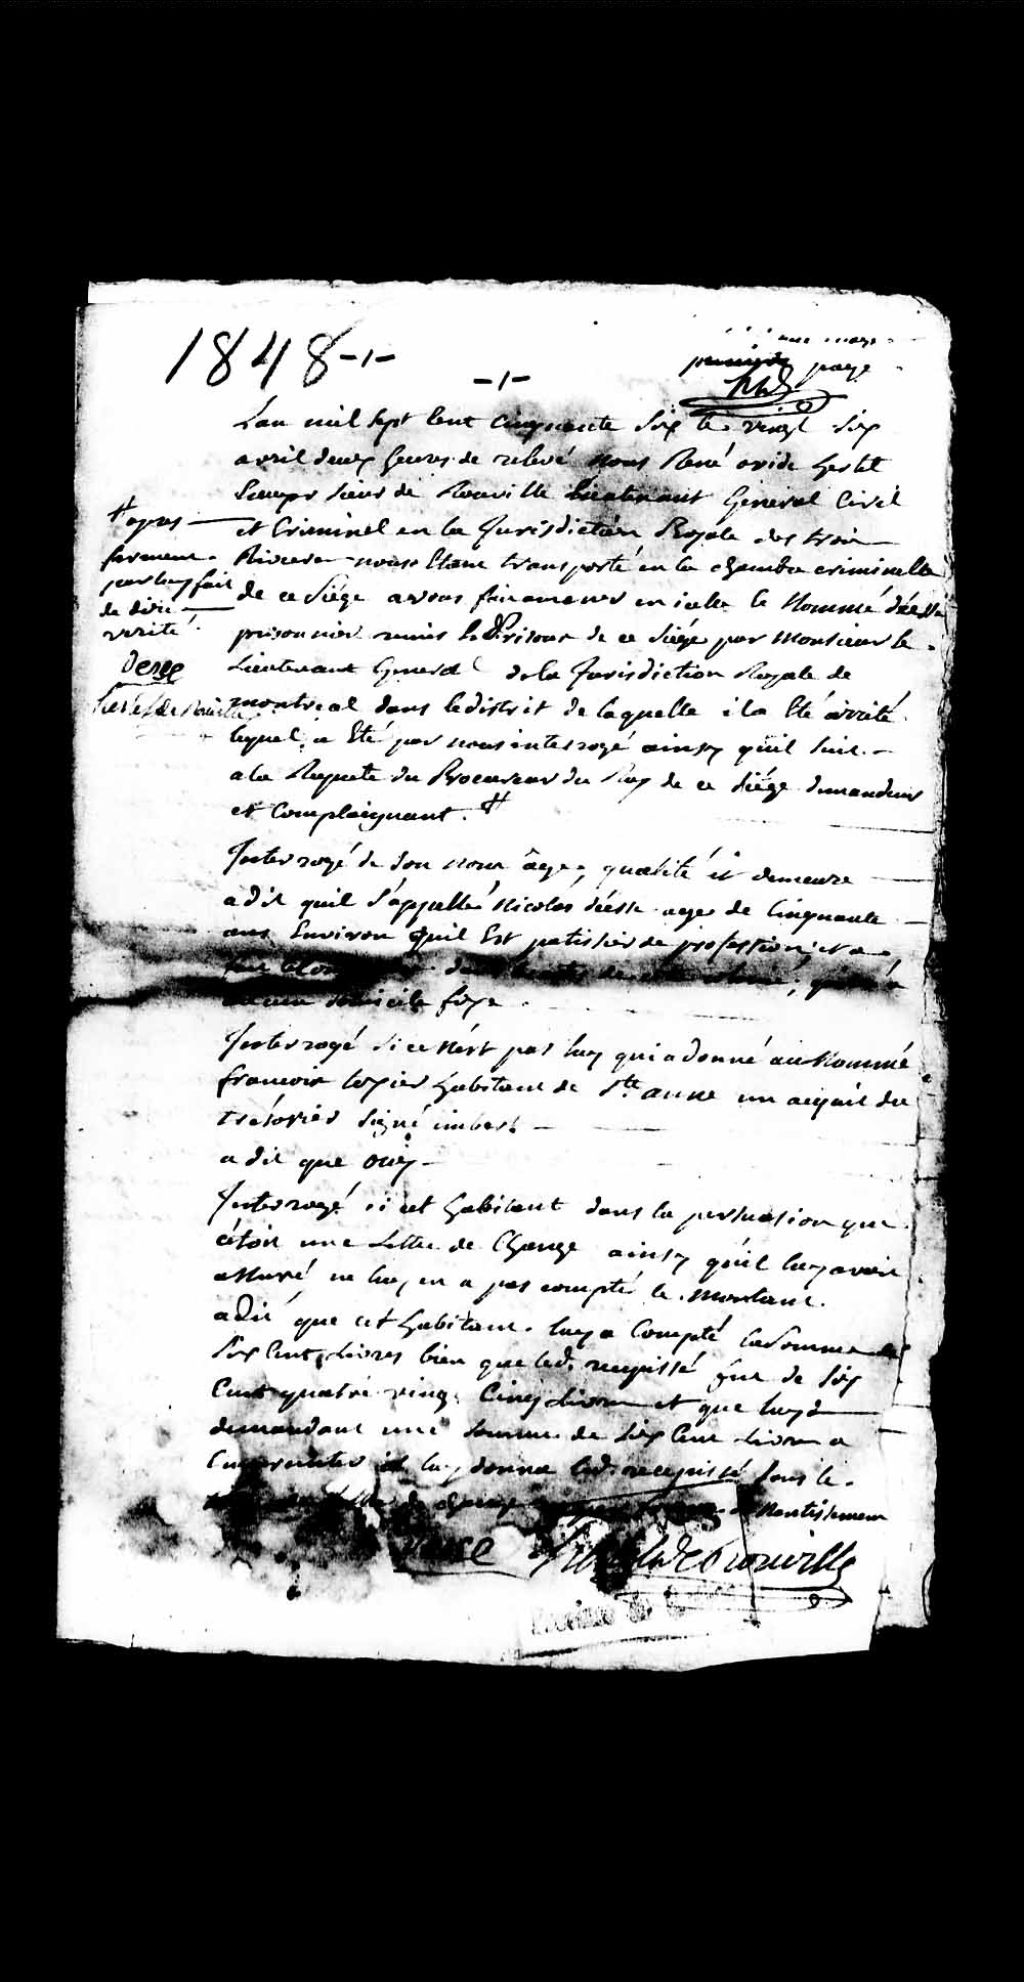 1848-1-
-1-
premiere page
L'an mil sept Cent cinquante six le vingt six
avril deux heures de relevé nous René ovide hertel
Ecuyer sieur de Rouville Lieutenant General Civil
et Criminel en la Jurisdiction Royale des trois
Rivieres nous Etant transporté en la chambre criminelle
de ce siége avons fait amener en icelle le Nommé déesse
prisonnier remis és Prisons de ce siége par Monsieur le
Lieutenant General de la Jurisdiction Royale de
montreal dans le district de laquelle il a Eté arrité
lequel a Eté par nous interrogé ainsy qu'il suit
a la Requete du Procureur du Roy de ce siége demandeur
et Complaignant. #
# apres
serment
par luy fait
de dire
verité
Desse
hertel de Rouville
Interrogé de son nom âge, qualité et demeure
a dit quil s'appelle Nicolas déesse agé de Cinquante
ans Environ quil Est patissier de profession, et
aucun domicile fixe
Interrogé si ce n'est pas luy qui a donné au Nommé
francois habitant de Ste anne un acquit du
trésorier signé imbert
a dit que ouy
Interrogé si cet habitant dans la persuasion que
c'étoit une Lettre de Change ainsy qu'il luy avoit
assuré ne luy en a pas compté le montant
a dit que cet habitant luy a Compté la somme de
six Cent Livres bien que led. recepissé fut de six
Cent quatre vingt Cinq Livres et que luy
demandant une somme de six Cent Livres a
Emprunter il luy donna led. recepissé sous le
de change Nantissement
hertel de Rouville